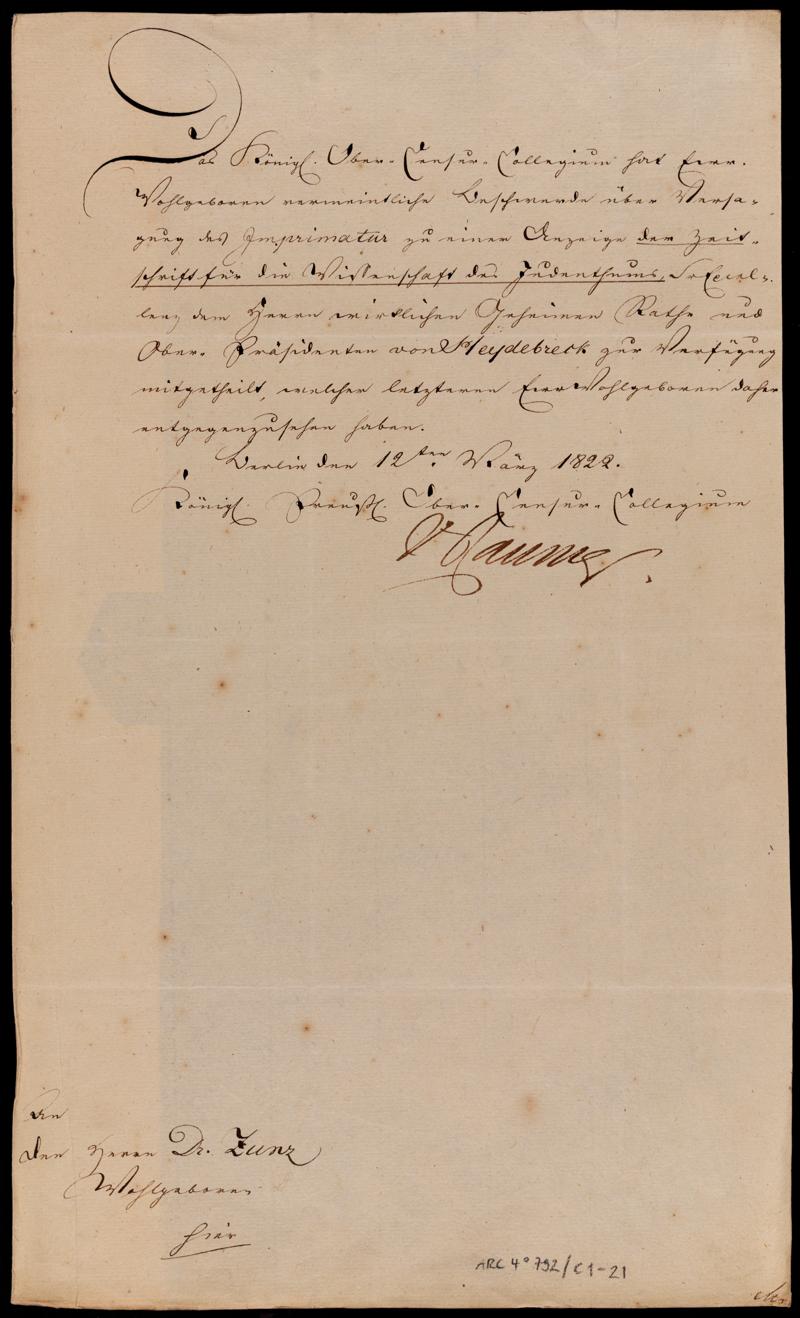 Das Königl. Ober-Censur-Collegium hat Euer.
Wohlgeboren vermeintliche Beschwerde über Versa-
gung des Imprimatur zu einer Anzeige der Zeit-
schrift für die Wissenschaft des Judenthums, Sr Excel-
lenz dem Herrn wirklichen Geheimen Rathe und
Ober-Präsidenten von Heydebreck zur Verfügung
mitgetheilt, welcher letzteren Euer Wohlgeboren daher
entgegenzusehen haben.
Berlin den 12ten März 1822.
Königl. Preuß. Ober-Censur-Collegium
vRaumer.
An
den Herrn Dr. Zunz
Wohlgeboren
hier
ARC 4° 792/C1-21